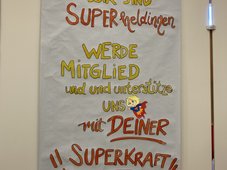 WIR SIND
SUPERheldingen
WERDE
MITGLIED
und und unterstütze
UNS
mit DEINER
!! SUPERKRAFT!